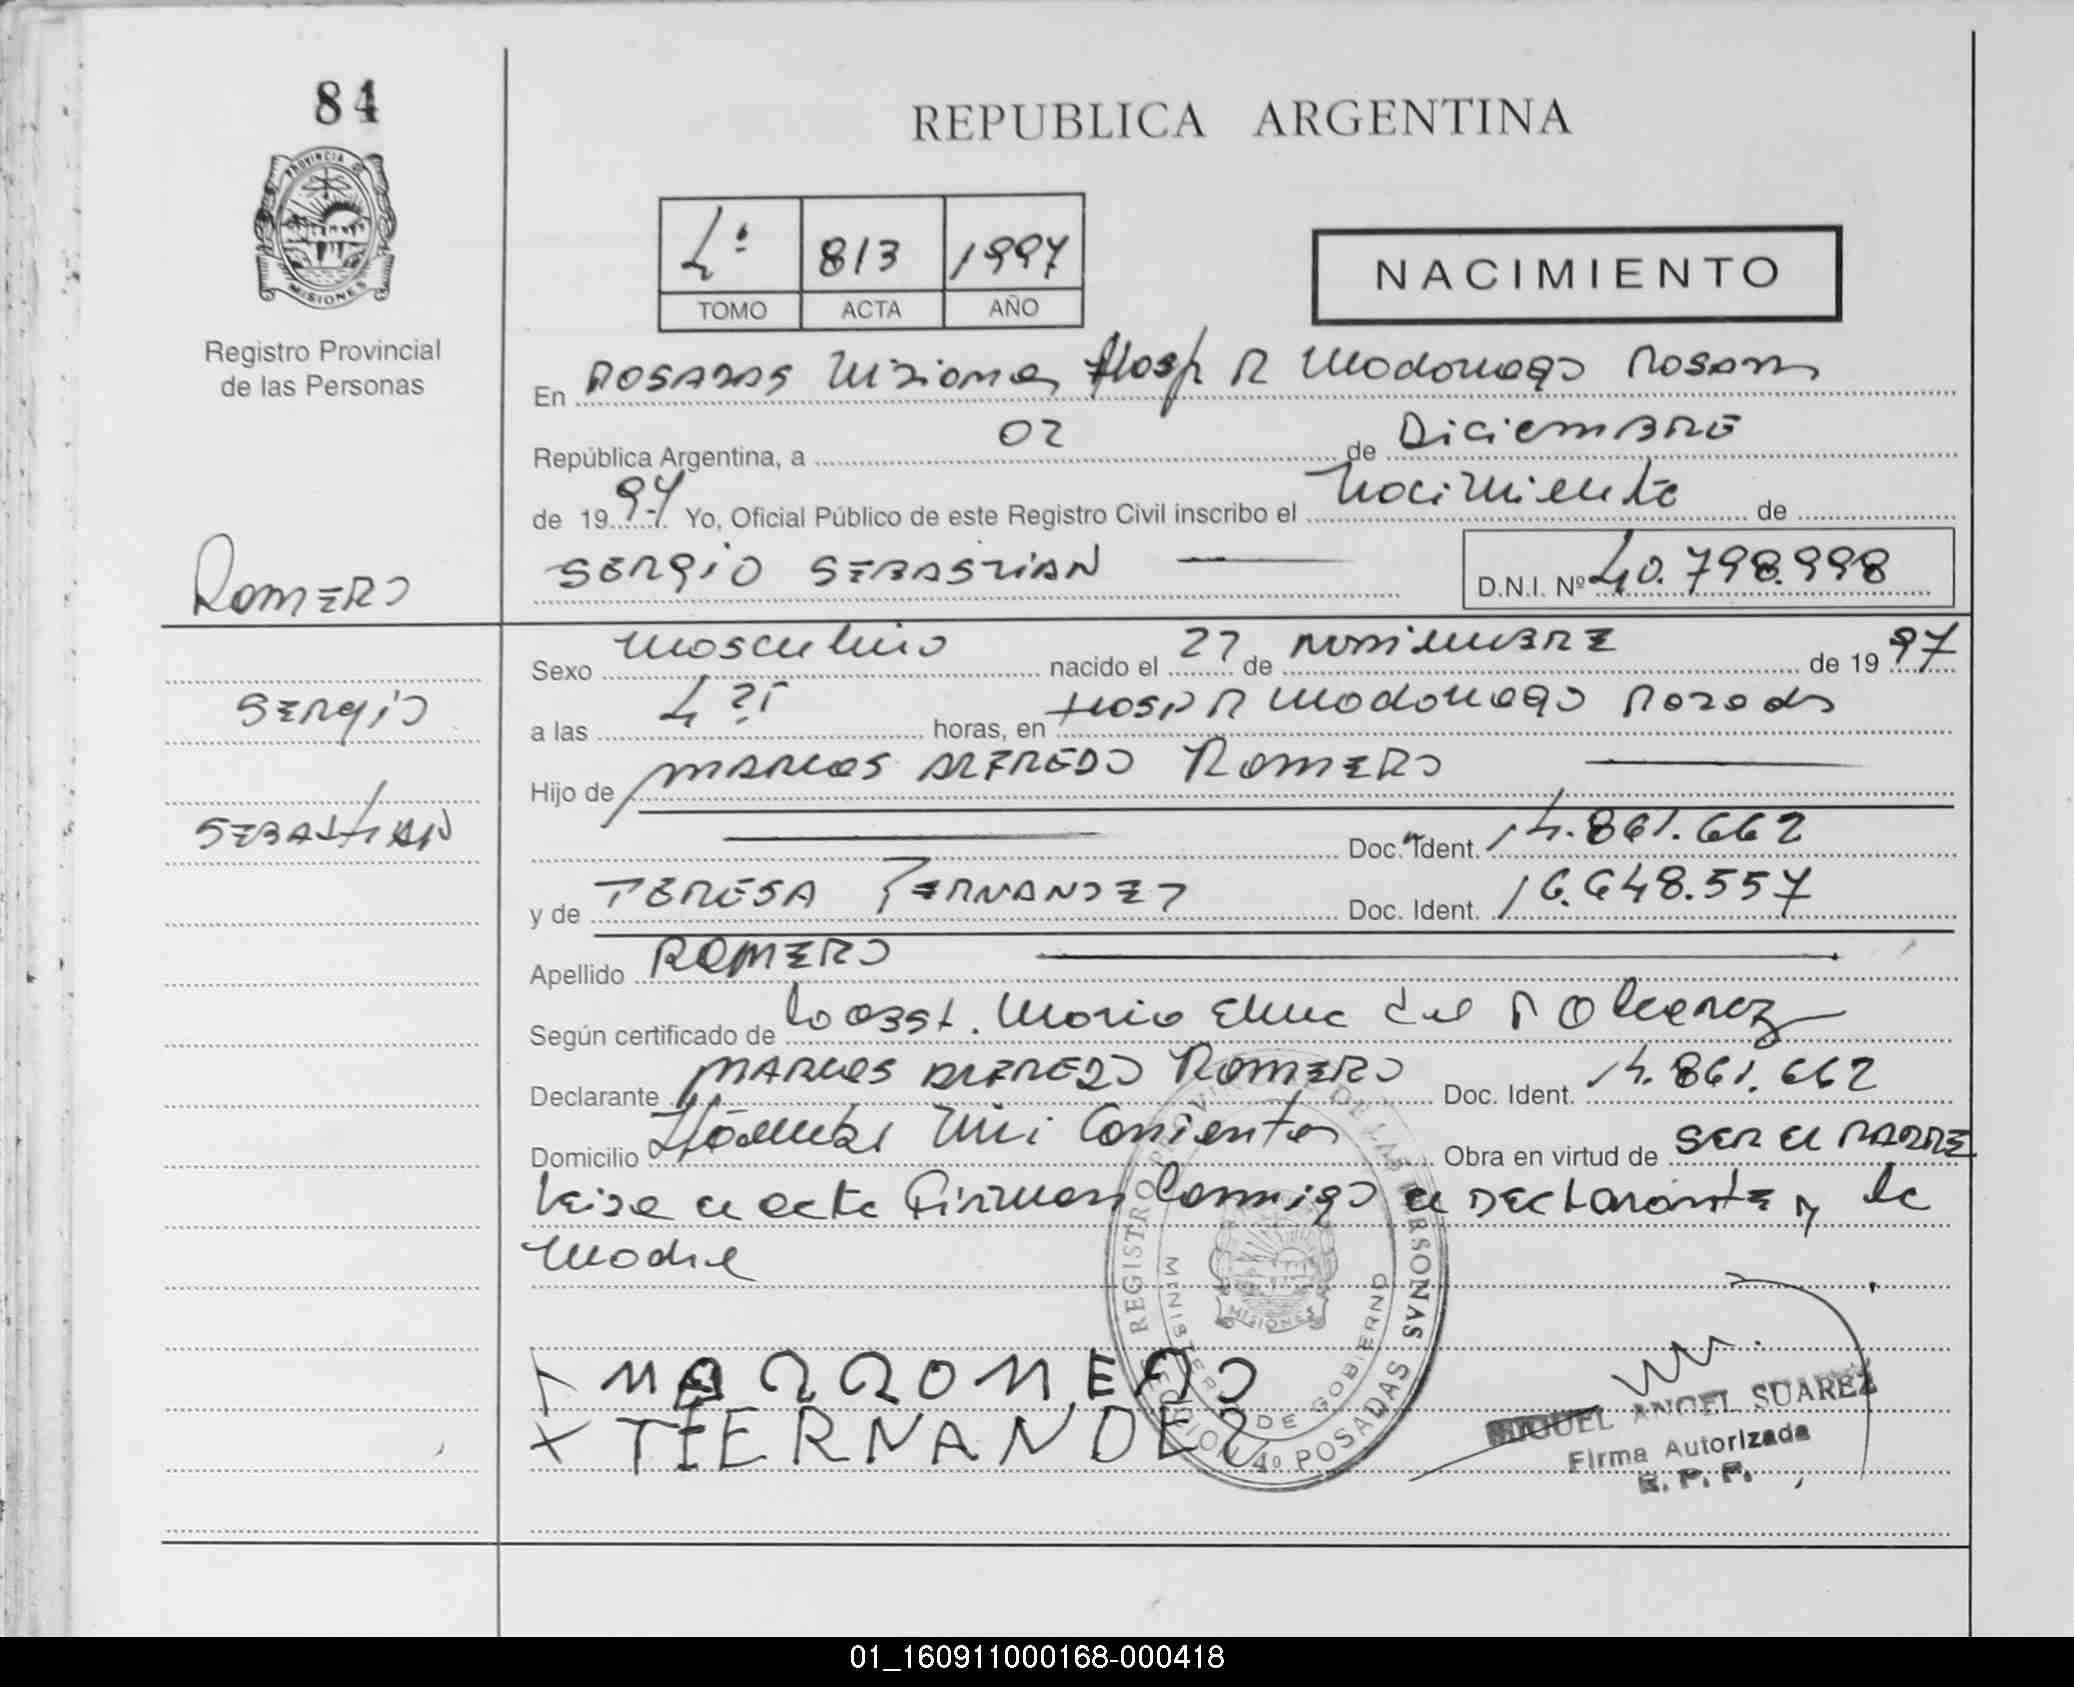 84
REPUBLICA ARGENTINA
PROVINCIA DE
MISIONES
4º 813 1997
TOMO ACTA AÑO
NACIMIENTO
Registro Provincial
de las Personas
En POSADAS Misiones Hosp R Madariaga Posadas
República Argentina, a 02 de DICIEMBRE
de 1997 Yo, Oficial Público de este Registro Civil inscribo el Nacimiento de
ROMERO
SERGIO SEBASTIAN
D.N.I. Nº 40.798.998
Sexo Masculino nacido el 27 de NOVIEMBRE de 1997
SERGIO
a las 4 horas, en Hosp R Madariaga Posadas
Hijo de MARCOS ALFREDO ROMERO
SEBASTIAN
Doc. Ident. 14.861.662
y de TERESA FERNANDEZ Doc. Ident. 16.648.557
Apellido ROMERO
Según certificado de la obst. Maria
Declarante MARCOS ALFREDO ROMERO Doc. Ident. 14.861.662
Domicilio Corrientes Obra en virtud de SER el PADRE
Leida el acta Firman Conmigo el DECLARANTE y la
Madre
REGISTRO PROVINCIAL DE LAS PERSONAS
MINISTERIO DE GOBIERNO
MISIONES
SECCION 4º POSADAS
X MAR ROMERO
X T FERNANDEZ
MIGUEL ANGEL SUAREZ
Firma Autorizada
R. P. P.
01_160911000168-000418